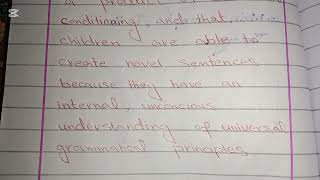 a product
conditioning and that
children are able to
create novel sentences
because they have an
internal, unconcious
understanding of universal
grammatical principles